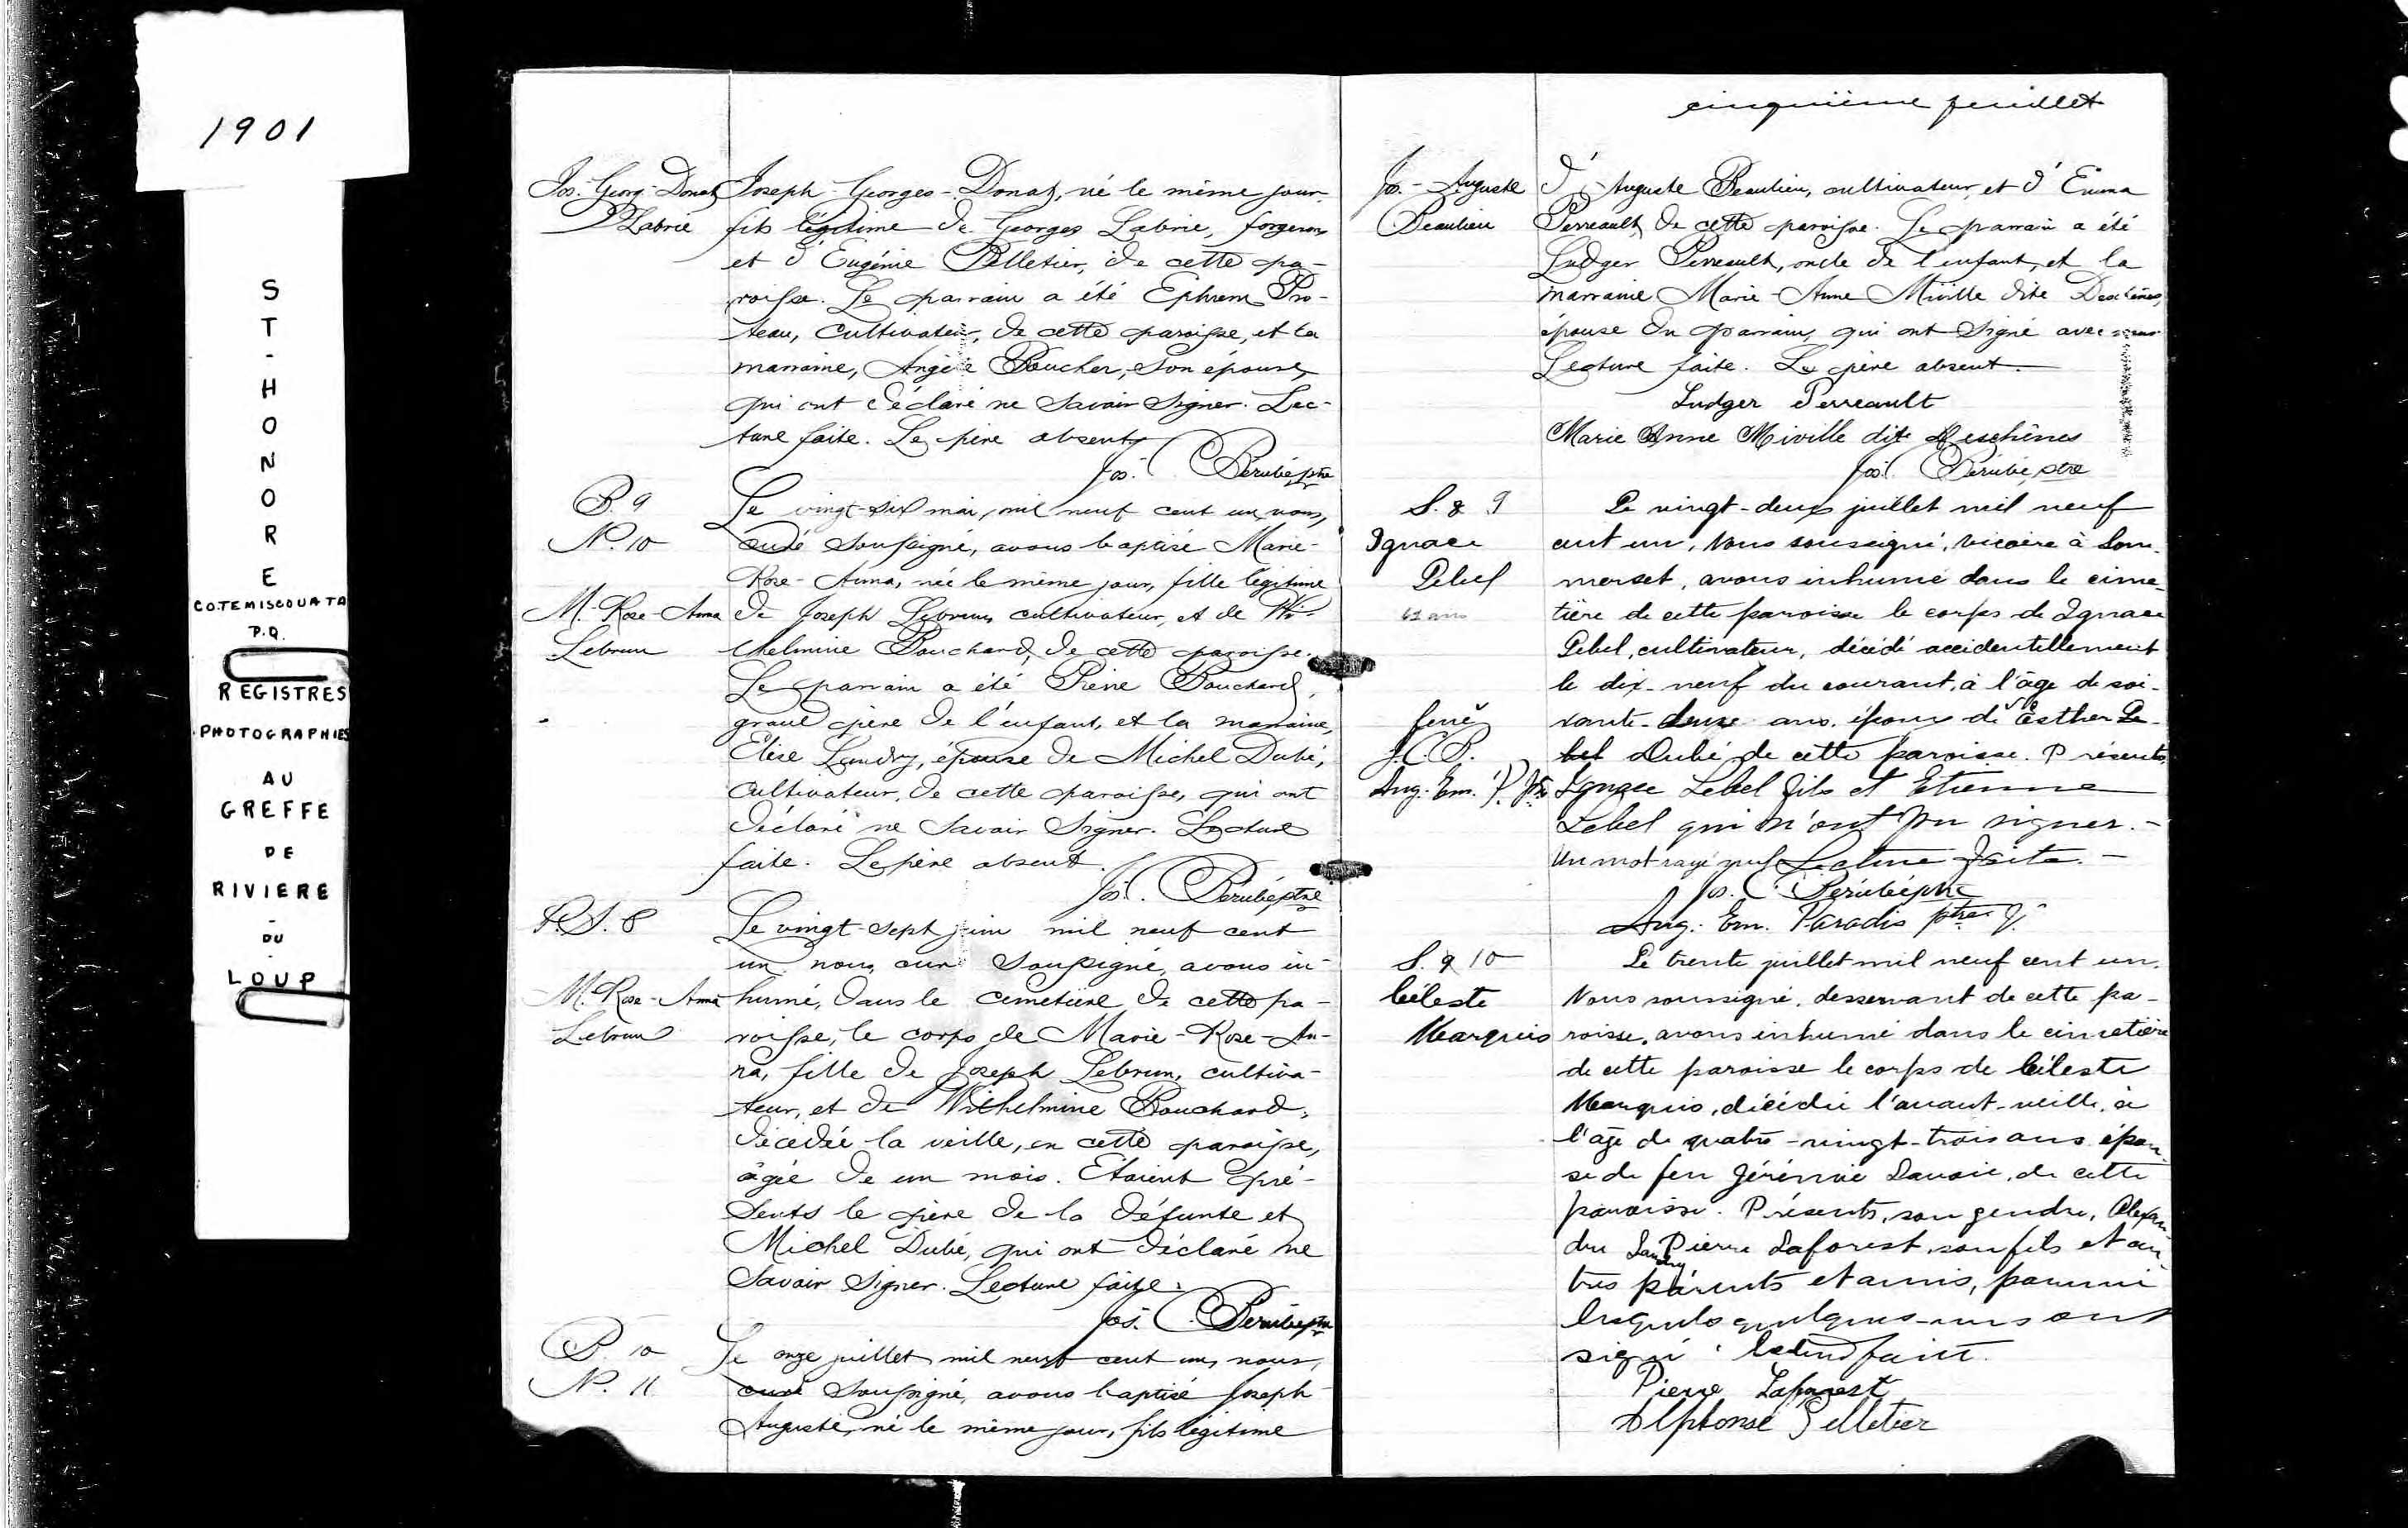 1901
S
T
-
H
O
N
O
R
E
CO.TEMISCOUATA
P.Q.
REGISTRES
PHOTOGRAPHIES
AU
GREFFE
DE
RIVIERE
-
DU
-
LOUP
Jos.-Georg-Donat
Labrie
Joseph-Georges-Donat, né le même jour,
fils légitime de Georges Labrie, forgeron,
et d'Eugénie Pelletier, de cette pa-
roisse. Le parrain a été Ephrem Pro-
teau, cultivateur, de cette paroisse, et la
marraine, Angèle Boucher, son épouse,
qui ont déclaré ne savoir signer. Lec-
ture faite. Le père absent.
Jos. C. Bérubé, ptre
B. 9
N. 10
M.-Rose-Anna
Lebrun
Le vingt-six mai, mil neuf cent un, nous,
curé soussigné, avons baptisé Marie-
Rose-Anna, née le même jour, fille légitime
de Joseph Lebrun, cultivateur, et de Wi-
lhelmine Bouchard, de cette paroisse.
Le parrain a été Pierre Bouchard,
grand père de l'enfant, et la marraine,
Elise Landry, épouse de Michel Dubé,
cultivateur, de cette paroisse, qui ont
déclaré ne savoir signer. Lecture
faite. Le père absent.
Jos. C. Bérubé, ptre
S. 8
M.-Rose-Anna
Lebrun
Le vingt-sept juin mil neuf cent
un, nous, curé soussigné, avons in-
humé, dans le cimetière de cette pa-
roisse, le corps de Marie-Rose-An-
na, fille de Joseph Lebrun, cultiva-
teur, et de Wilhelmine Bouchard,
décédée la veille, en cette paroisse,
âgée de un mois. Etaient pré-
sents le père de la défunte et
Michel Dubé, qui ont déclaré ne
savoir signer. Lecture faite.
Jos. C. Bérubé, ptre
B. 10
N. 11
Le onze juillet mil neuf cent un, nous,
curé soussigné, avons baptisé Joseph-
Auguste, né le même jour, fils légitime
cinquième feuillet
Jos.-Auguste
Beaulieu
d'Auguste Beaulieu, cultivateur, et d'Emma
Perreault, de cette paroisse. Le parrain a été
Ludger Perreault, oncle de l'enfant, et la
marraine Marie-Anne Miville dite Deschènes,
épouse du parrain, qui ont signé avec nous.
Lecture faite. Le père absent.
Ludger Perreault
Marie Anne Miville dite Deschènes
Jos. C. Bérubé, ptre
S. 8 9
Ignace
Lebel
62 ans
J.C.B.
Aug. Em. P. Ptre
Le vingt-deux juillet mil neuf
cent un, Nous soussigné, vicaire à Som-
merset, avons inhumé dans le cime-
tière de cette paroisse le corps de Ignace
Lebel, cultivateur, décédé accidentellement
le dix-neuf du courant, à l'âge de soi-
xante-deux ans, époux de Esther Le-
bel Dubé de cette paroisse. Présents,
Ignace Lebel fils et Etienne
Lebel qui n'ont pu signer.-
Un mot rayé nul Lecture faite.-
Jos. C. Bérubé ptre
Aug. Em. Paradis ptre V.
S. 9 10
Céleste
Marquis
Le trente juillet mil neuf cent un,
Nous soussigné, desservant de cette pa-
roisse, avons inhumé dans le cimetière
de cette paroisse le corps de Céleste
Marquis, décédée l'avant-veille, à
l'âge de quatre-vingt-trois ans épou-
se de feu Jérémie Savoie, de cette
paroisse. Présents, son gendre, Alexan-
dre Landry Pierre Laforest, son fils et au-
tres parents et amis, parmi
lesquels quelques-uns ont
signé. Lecture faite.
Pierre Laforest
Alphonse Pelletier